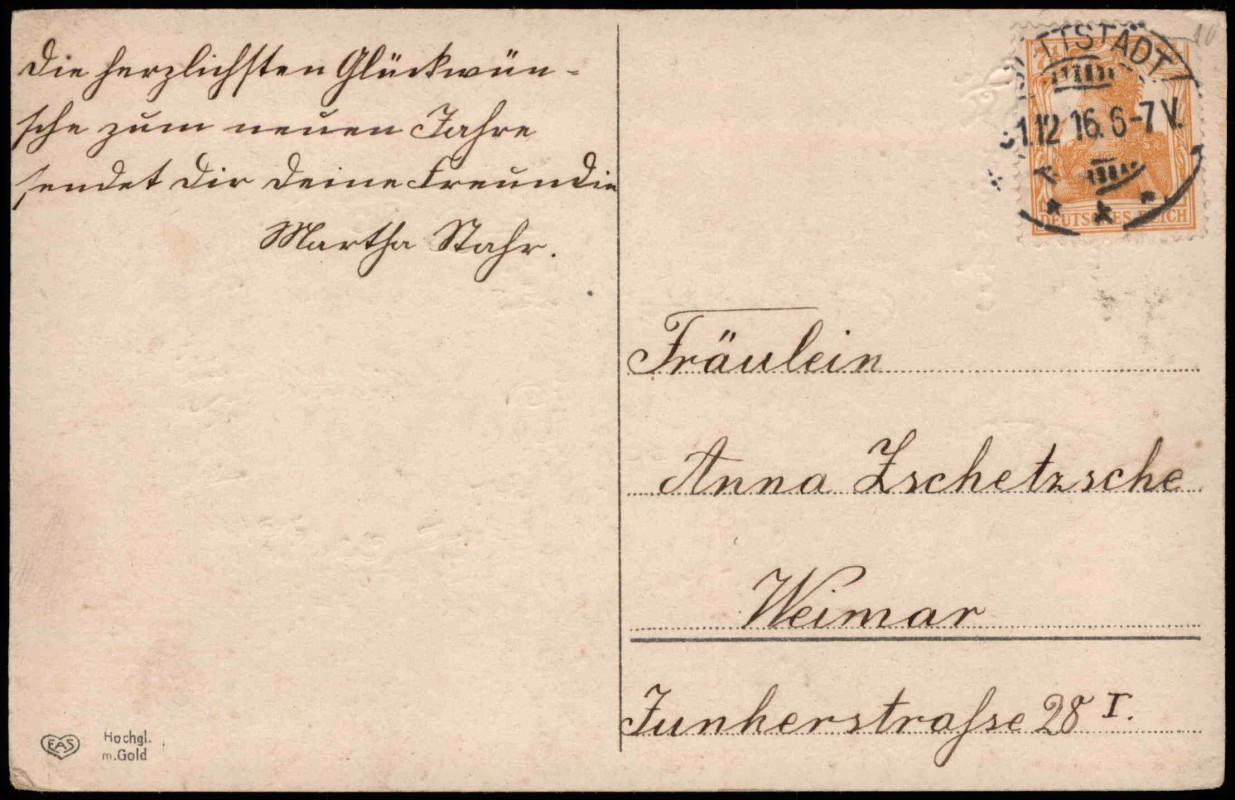 Die herzlichsten Glückwün-
sche zum neuen Jahre
sendet Dir Deine Freundin
Martha Stahr.
TTSTÄDT
1.12 16. 6-7 V.
DEUTSCHES REICH
Fräulein
Anna Zschetzsche
Weimar
Junkerstraße 28 I.
EAS
Hochgl.
m. Gold
10